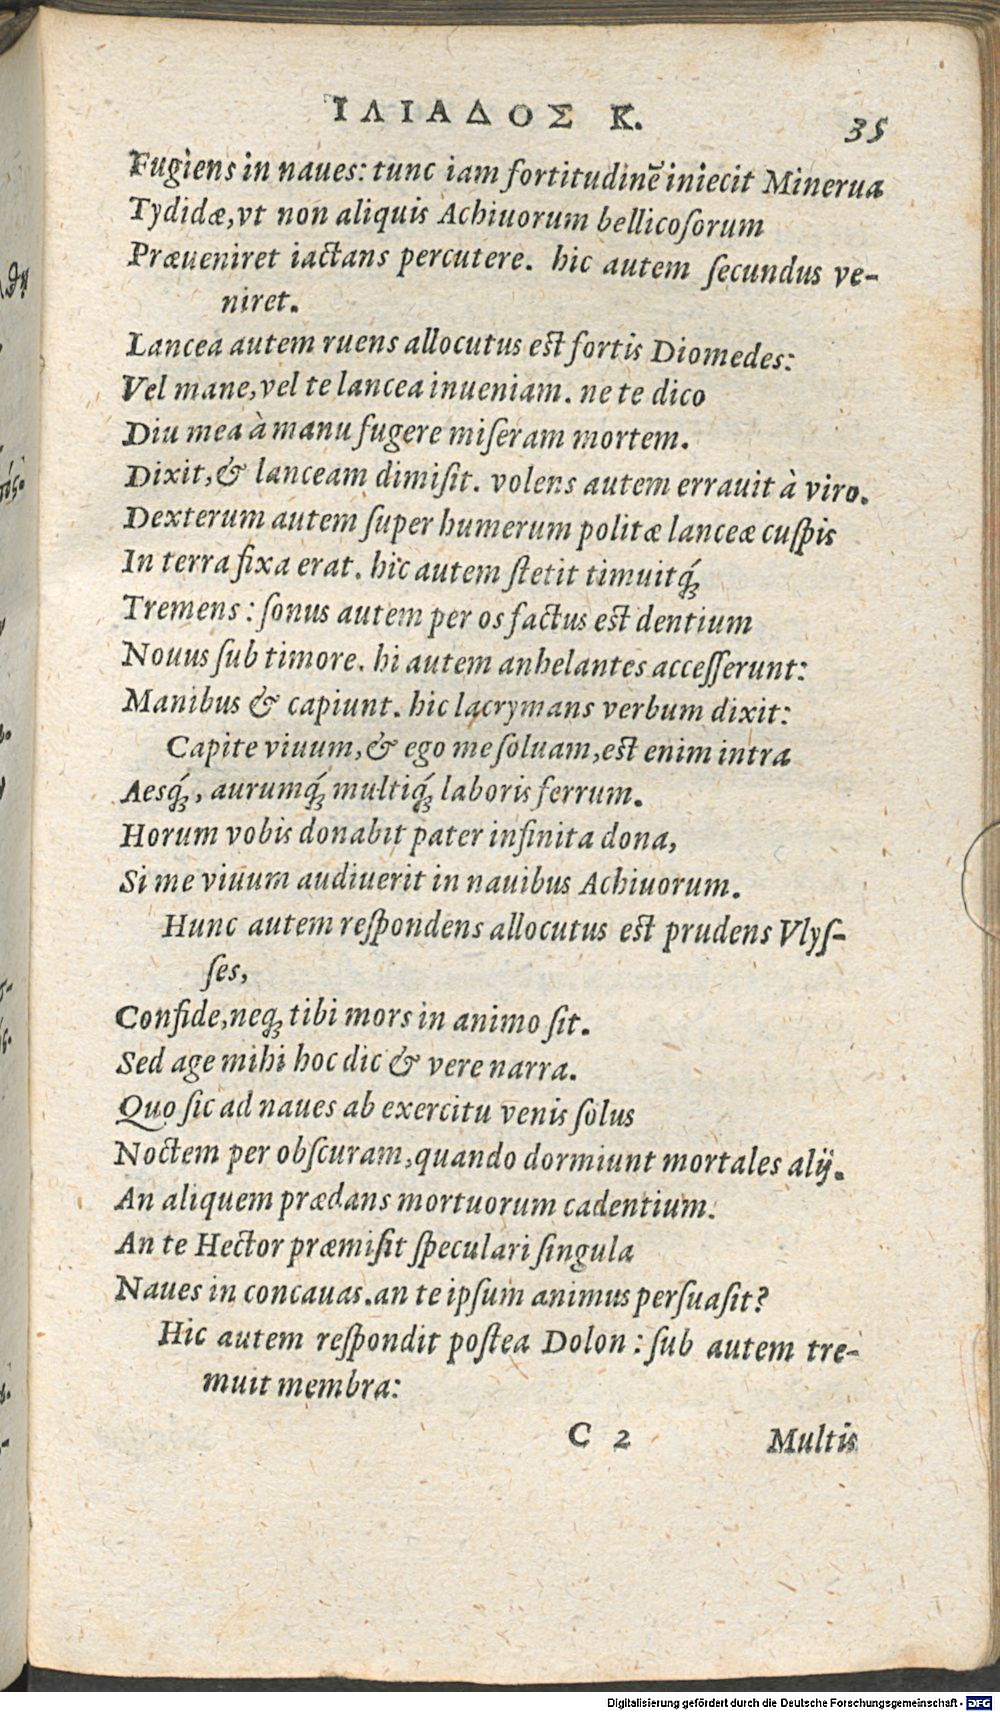 ΙΛΙΑΔΟΣ Κ. 35
Fugiens in naues: tunc iam fortitudinẽ iniecit Minerua
Tydidæ, vt non aliquis Achiuorum bellicoſorum
Præueniret iactans percutere. hic autem ſecundus ve-
niret.
Lancea autem ruens allocutus eſt fortis Diomedes:
Vel mane, vel te lancea inueniam. ne te dico
Diu mea à manu fugere miſeram mortem.
Dixit, & lanceam dimiſit. volens autem errauit à viro.
Dexterum autem ſuper humerum politæ lanceæ cuſpis
In terra fixa erat. hic autem ſtetit timuitq́;
Tremens: ſonus autem per os factus eſt dentium
Nouus ſub timore. hi autem anhelantes acceſſerunt:
Manibus & capiunt. hic lacrymans verbum dixit:
Capite viuum, & ego me ſoluam, eſt enim intra
Aesq́;, aurumq́; multiq́; laboris ferrum.
Horum vobis donabit pater infinita dona,
Si me viuum audiuerit in nauibus Achiuorum.
Hunc autem reſpondens allocutus eſt prudens Vlyſ-
ſes,
Confide, neq; tibi mors in animo ſit.
Sed age mihi hoc dic & vere narra.
Quo ſic ad naues ab exercitu venis ſolus
Noctem per obſcuram, quando dormiunt mortales alij.
An aliquem prædans mortuorum cadentium.
An te Hector præmiſit ſpeculari ſingula
Naues in concauas. an te ipſum animus perſuaſit?
Hic autem reſpondit poſtea Dolon: ſub autem tre-
muit membra:
C 2 Multis
Digitalisierung gefördert durch die Deutsche Forschungsgemeinschaft - DFG